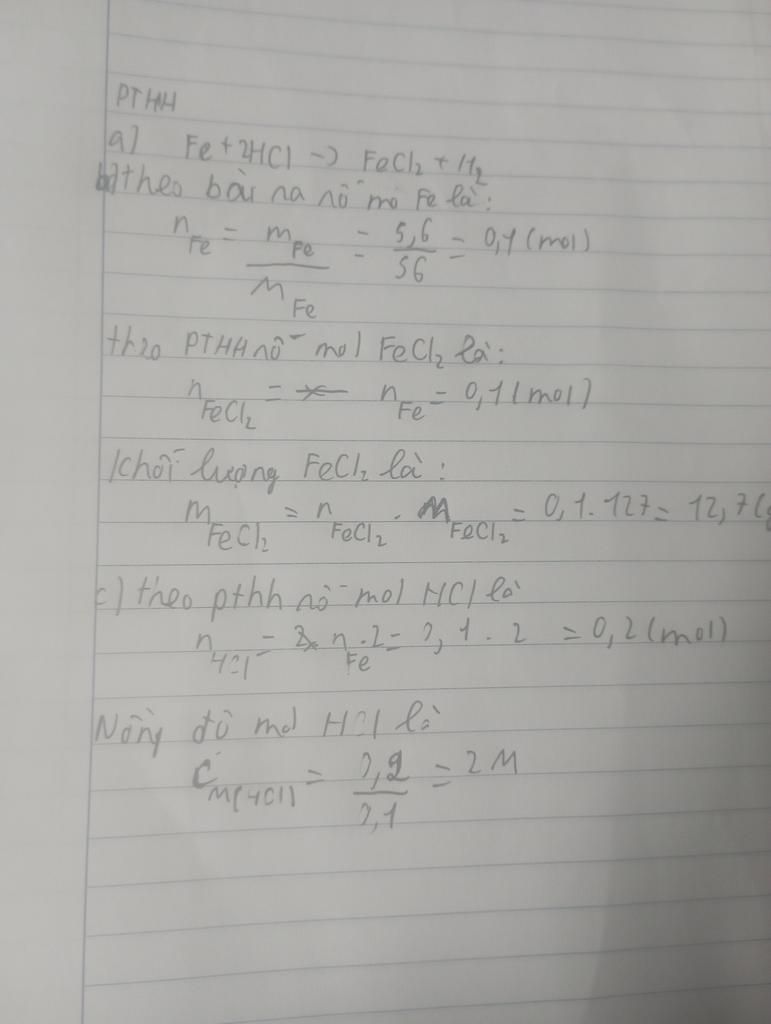 PTHH
a) Fe + 2HCl -> FeCl2 + H2
b) theo bài ra nố mo Fe là:
n Fe = m Fe / M Fe = 5,6 / 56 = 0,1 (mol)
theo PTHH nố mol FeCl2 là:
n FeCl2 = n Fe = 0,1 (mol)
Khối lượng FeCl2 là:
m FeCl2 = n FeCl2 . M FeCl2 = 0,1 . 127 = 12,7 (g
c) theo pthh nố mol HCl là
n HCl = n Fe . 2 = 0,1 . 2 = 0,2 (mol)
Nồng độ mol HCl là
C M(HCl) = 0,2 / 0,1 = 2 M